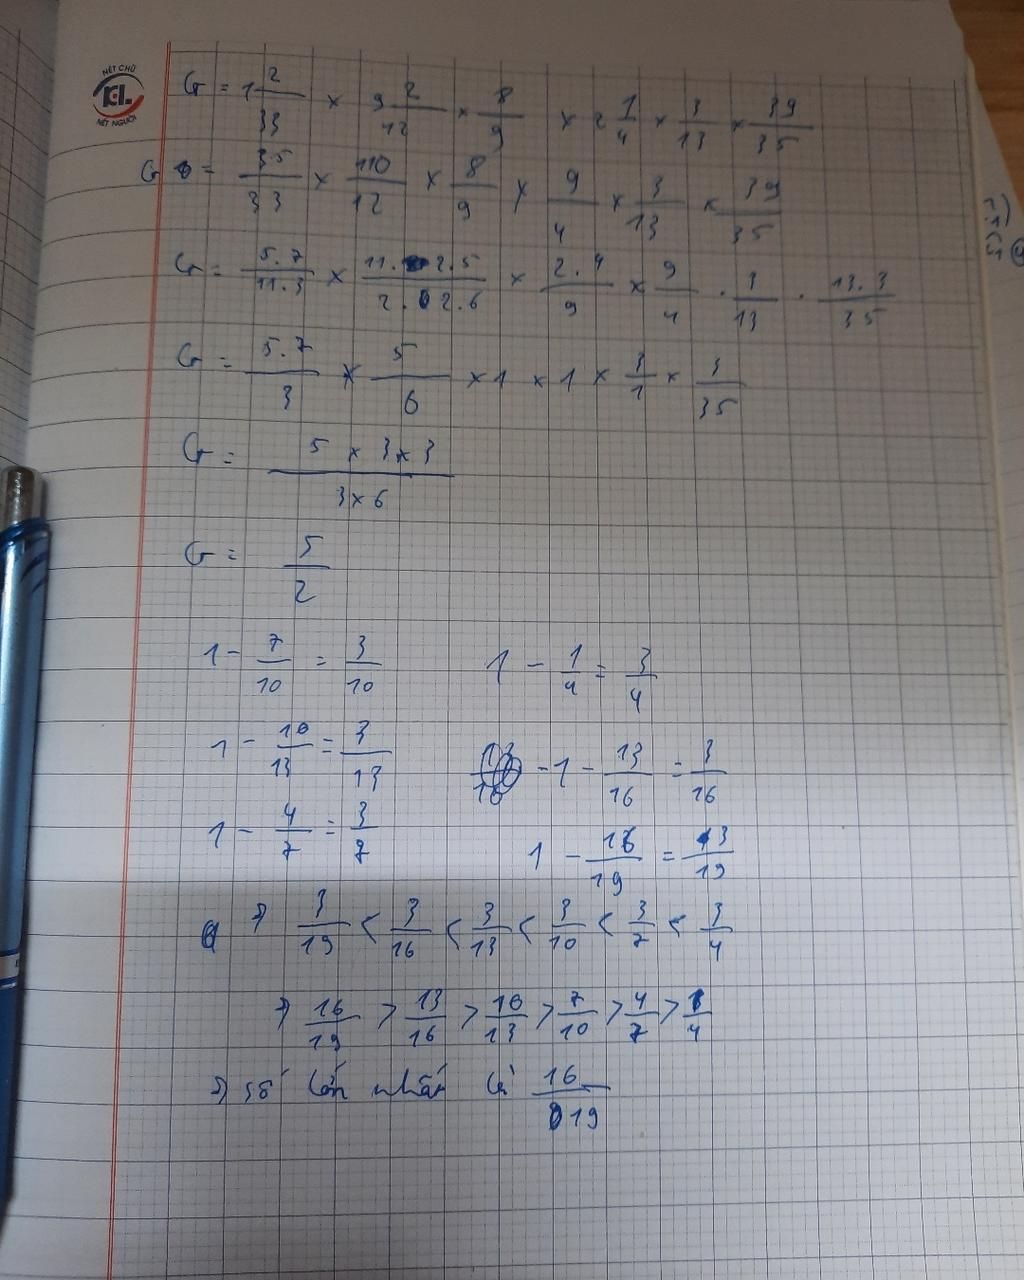 NÉT CHỮ
KL
NẾT NGƯỜI
G = 1 2/33 × 9 2/12 × 8/9 × 2 1/4 × 3/13 × 39/35
G = 35/33 × 110/12 × 8/9 × 9/4 × 3/13 × 39/35
G = 5.7/11.3 × 11.2.5/2.2.6 × 2.4/9 × 9/4 . 3/13 . 13.3/35
G = 5.7/3 × 5/6 × 1 × 1 × 3/1 × 3/35
G = 5 × 3 × 3/3 × 6
G = 5/2
1 - 7/10 = 3/10 1 - 1/4 = 3/4
1 - 10/13 = 3/13 - 1 - 13/16 = 3/16
1 - 4/7 = 3/7 1 - 16/19 = 3/19
⇒ 3/19 < 3/16 < 3/13 < 3/10 < 3/7 < 3/4
⇒ 16/19 > 13/16 > 10/13 > 7/10 > 4/7 > 1/4
⇒ số lớn nhất là 16/19